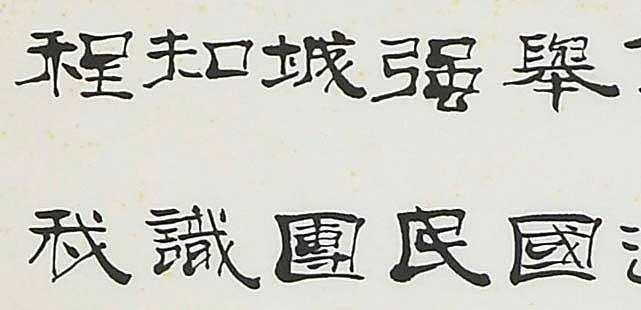 舉國
强民
城團
知識
程我